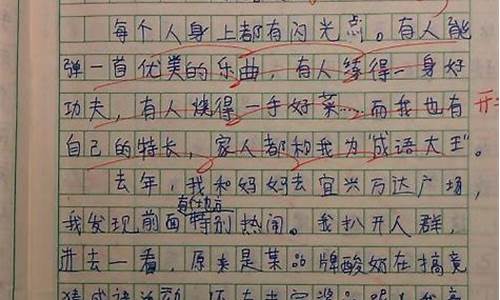 每个人身上都有闪光点。有人能
弹一首优美的乐曲，有人练得一身好
功夫，有人烧得一手好菜……而我也有
自己的特长，家人都和我为“成语大王”。
去年，我和妈妈去宜兴万达广场，
我发现前面特别热闹。我扒开人群，
进去一看，原来是某品牌酸奶在搞竞
猜成语活动